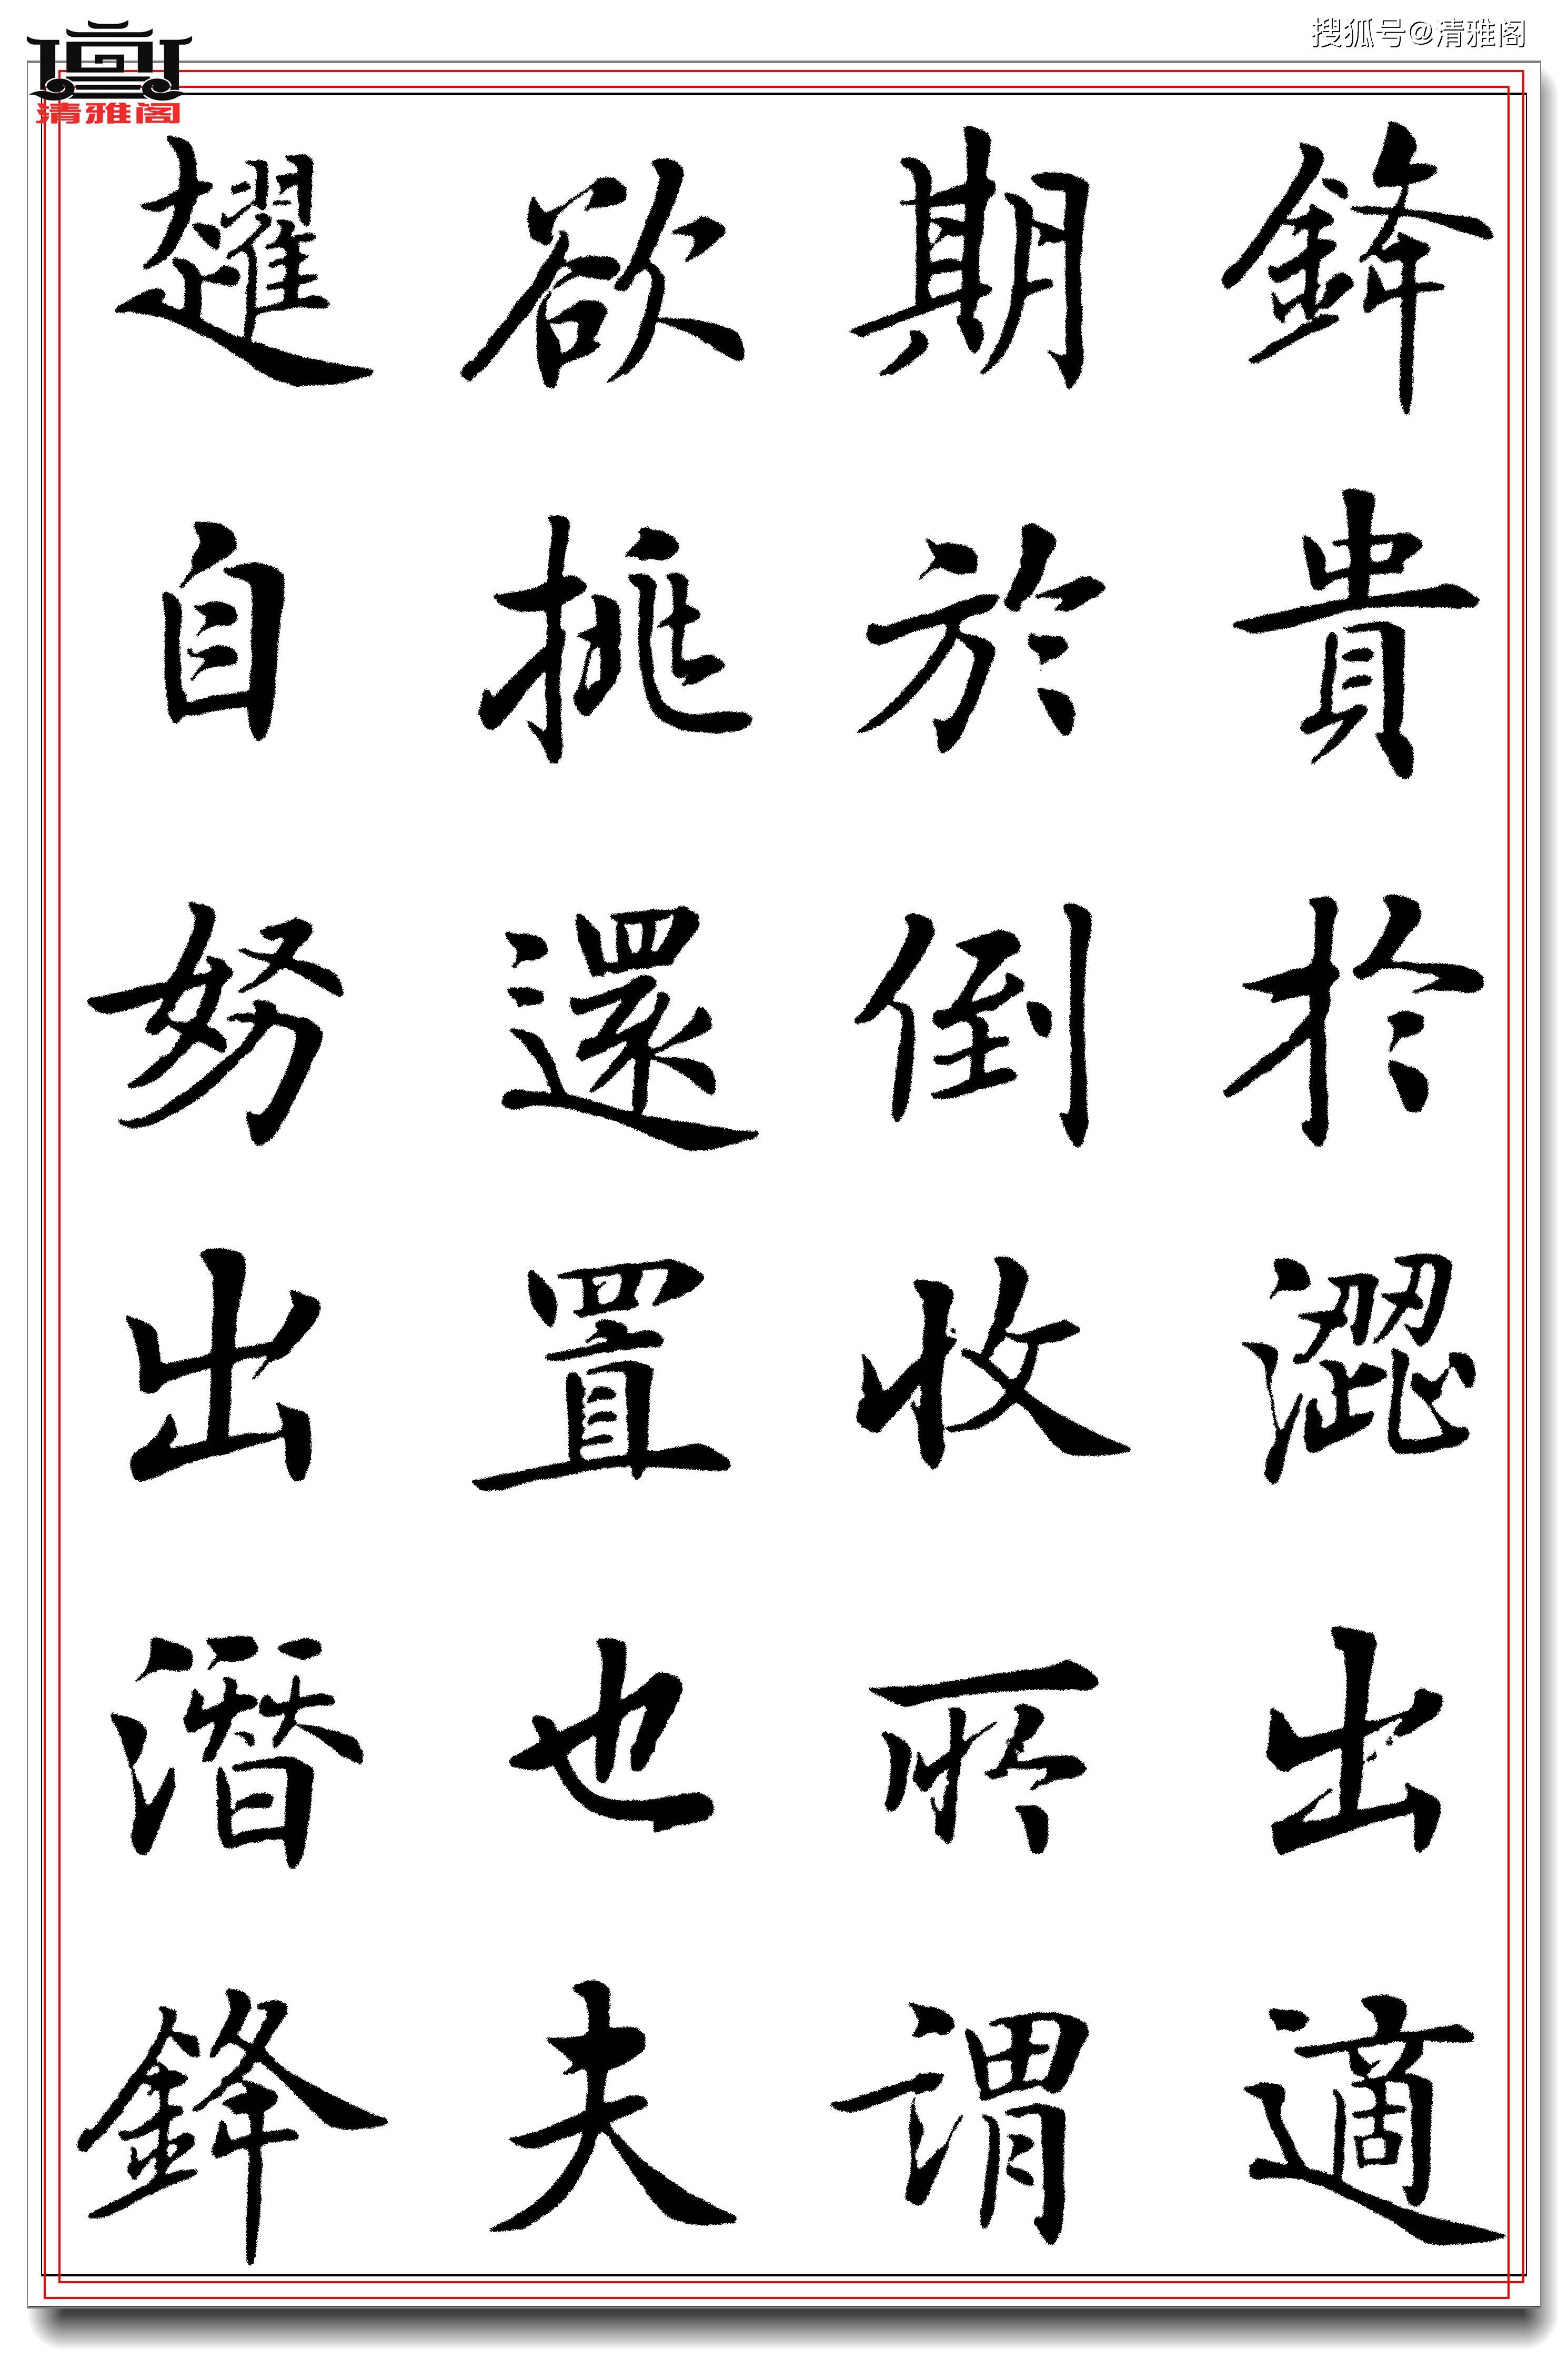 搜狐号@清雅阁
清雅阁
鋒貴於澀出適
期於倒收所謂
欲挑還置也夫
趯自努出潛鋒